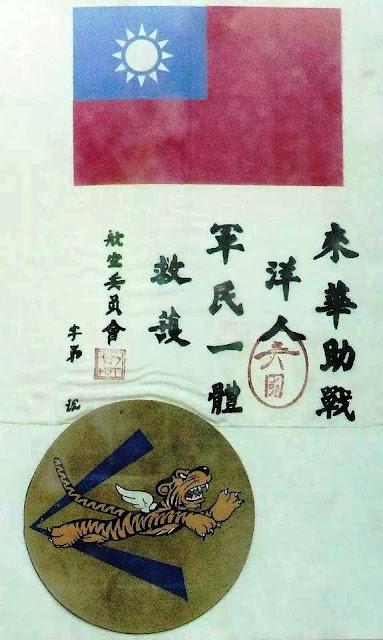 來華助戰
洋人
美國
軍民一體
救護
航空委員會
字第 號